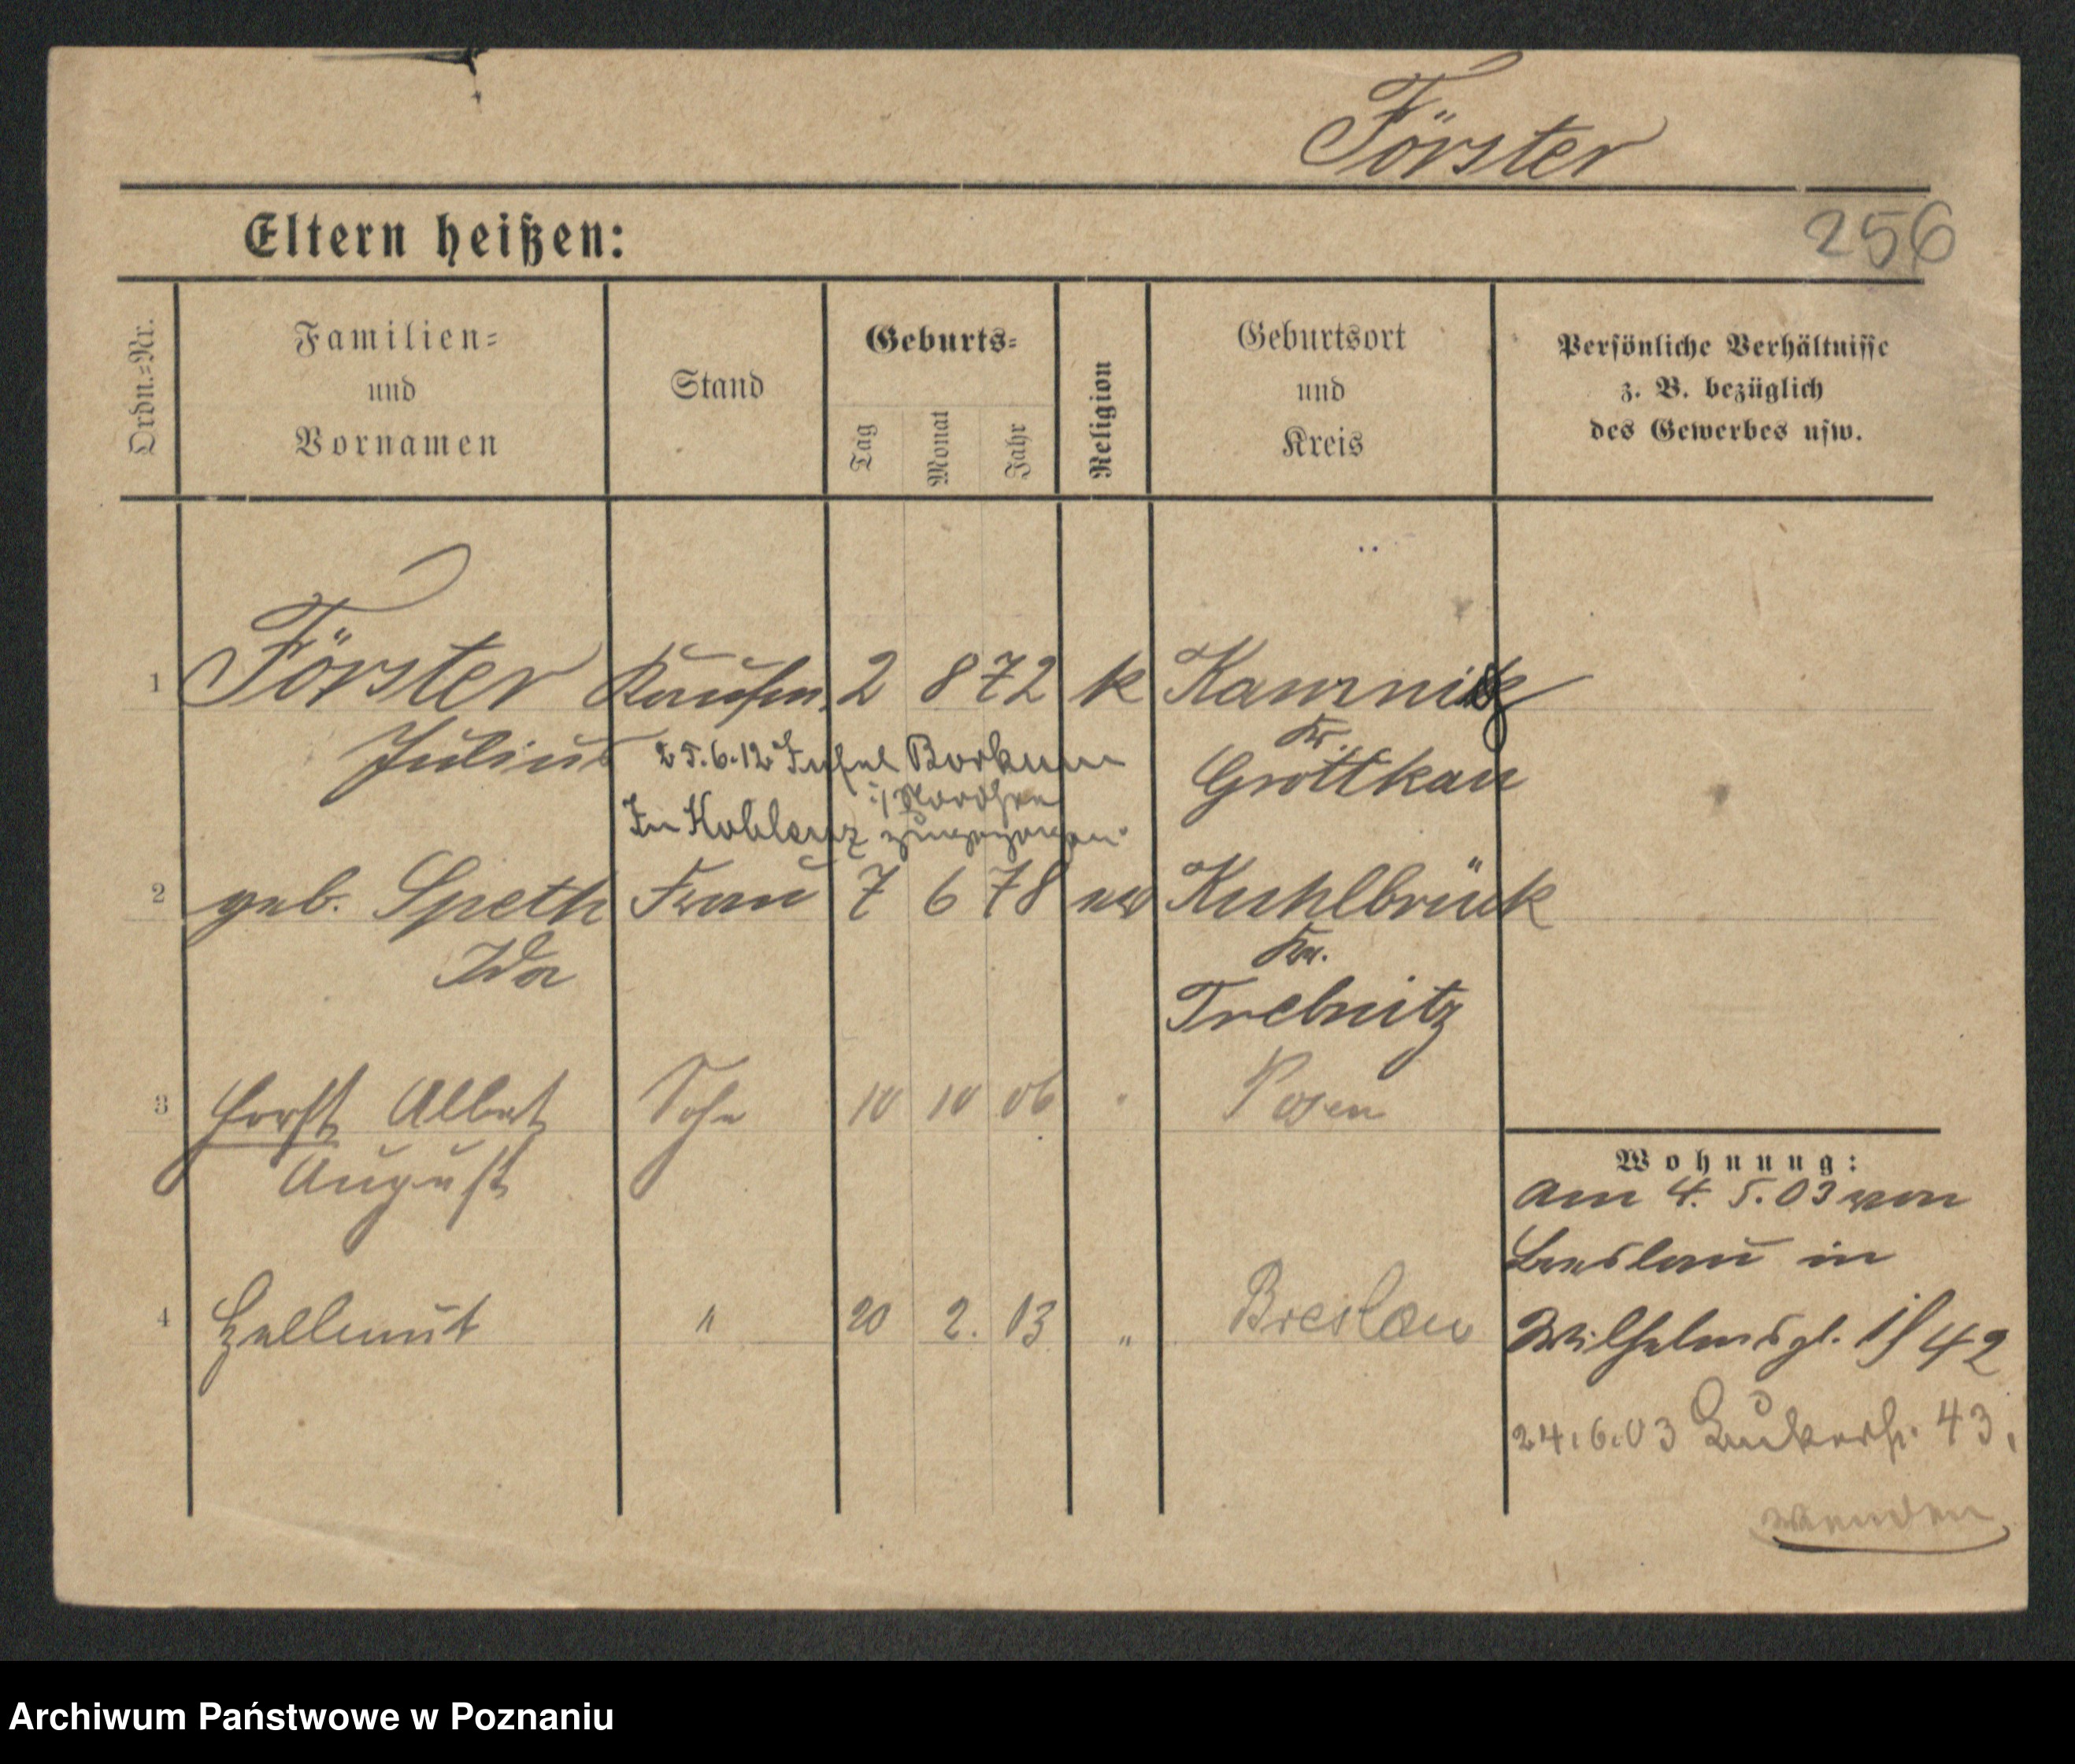 Förster
256
Eltern heißen:
Ordn.-Nr.
Familien-
und
Vornamen
Stand
Geburts-
Tag
Monat
Jahr
Religion
Geburtsort
und
Kreis
Persönliche Verhältnisse
z. B. bezüglich
des Gewerbes usw.
1 Förster Kaufm. 2 8 72 k Kamnig
Julius
Kr.
Grottkau
25.6.12 Insel Borkum
i/Nordsee
In Koblenz zugezogen
2 geb. Speth Frau 7 6 78 ev Kuhlbrück
Ida
Kr.
Trebnitz
3 Horst Albert Sohn 10 10 06 " Posen
August
4 Hellmut " 20 2. 03 " Breslau
Wohnung:
am 4. 5. 03 von
Breslau in
Wilhelmspl. 42
24.6.03 43.
wenden
Archiwum Państwowe w Poznaniu